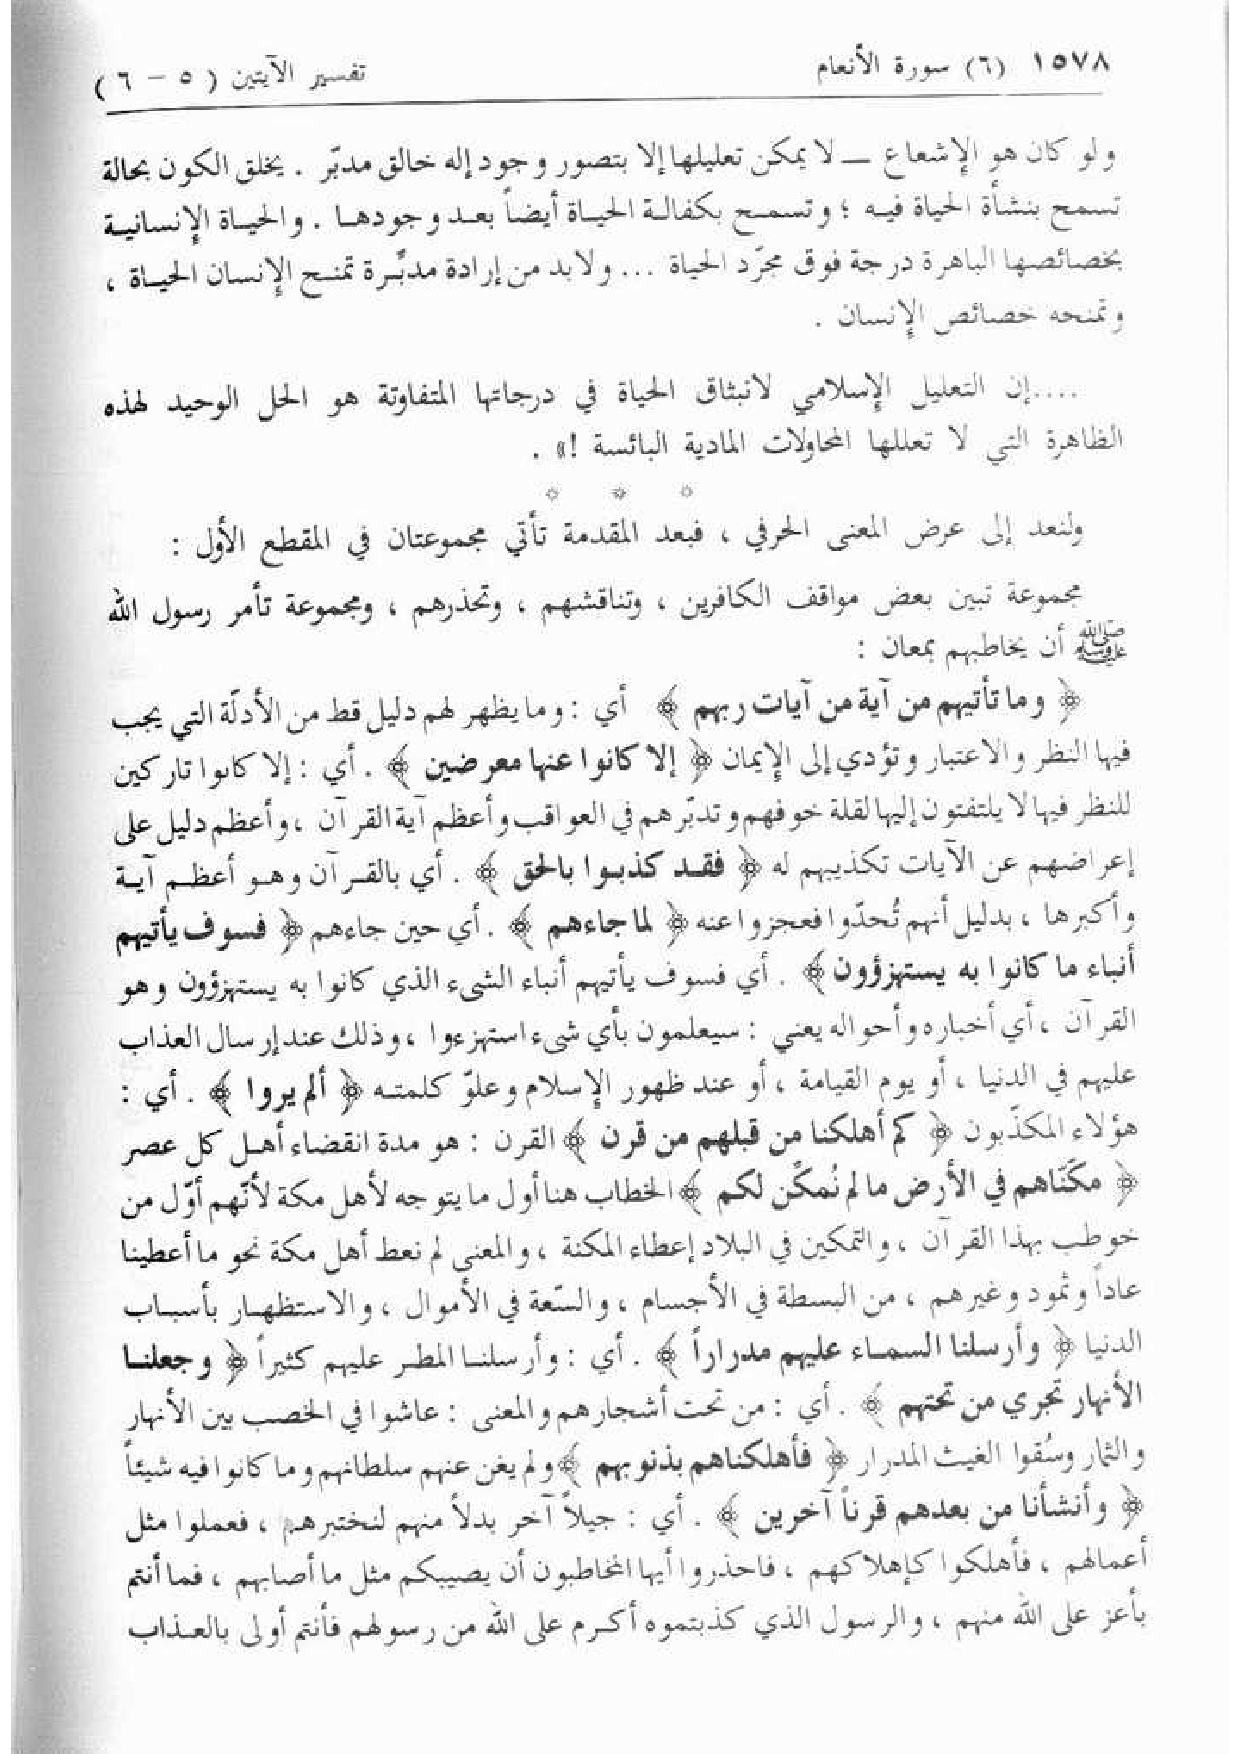 ١٥٧٨ (٦) سورة الأنعام تفسير الآيتين ( ٥ – ٦ )
ولو كان هو الإشعاع — لا يمكن تعليلها إلا بتصور وجود إله خالق مدبّر . يخلق الكون بحالة
تسمح بنشأة الحياة فيه ؛ وتسمح بكفالة الحياة أيضاً بعد وجودها . والحياة الإنسانية
بخصائصها الباهرة درجة فوق مجرّد الحياة ... ولابد من إرادة مدبِّرة تمنح الإنسان الحياة ،
وتمنحه خصائص الإنسان .
....إن التعليل الإسلامي لانبثاق الحياة في درجاتها المتفاوتة هو الحل الوحيد لهذه
الظاهرة التي لا تعللها المحاولات المادية البائسة !» .
* * *
ولنعد إلى عرض المعنى الحرفي ، فبعد المقدمة تأتي مجموعتان في المقطع الأول :
مجموعة تبين بعض مواقف الكافرين ، وتناقشهم ، وتحذرهم ، ومجموعة تأمر رسول الله
ﷺ أن يخاطبهم بمعان :
﴿ وما تأتيهم من آية من آيات ربهم ﴾ أي : وما يظهر لهم دليل قط من الأدلّة التي يجب
فيها النظر والاعتبار وتؤدي إلى الإيمان ﴿ إلا كانوا عنها معرضين ﴾ . أي : إلا كانوا تاركين
للنظر فيها لا يلتفتون إليها لقلة خوفهم وتدبّرهم في العواقب وأعظم آية القرآن ، وأعظم دليل على
إعراضهم عن الآيات تكذيبهم له ﴿ فقد كذبوا بالحق ﴾ . أي بالقرآن وهو أعظم آية
وأكبرها ، بدليل أنهم تُحدّوا فعجزوا عنه ﴿ لما جاءهم ﴾ . أي حين جاءهم ﴿ فسوف يأتيهم
أنباء ما كانوا به يستهزؤون ﴾ . أي فسوف يأتيهم أنباء الشيء الذي كانوا به يستهزؤون وهو
القرآن ، أي أخباره وأحواله يعني : سيعلمون بأي شيء استهزءوا ، وذلك عند إرسال العذاب
عليهم في الدنيا ، أو يوم القيامة ، أو عند ظهور الإسلام وعلوّ كلمته ﴿ ألم يروا ﴾ . أي :
هؤلاء المكذّبون ﴿ كم أهلكنا من قبلهم من قرن ﴾ القرن : هو مدة انقضاء أهل كل عصر
﴿ مكّنّاهم في الأرض ما لم نُمكّن لكم ﴾ الخطاب هنا أول ما يتوجه لأهل مكة لأنّهم أوّل من
خوطب بهذا القرآن ، والتمكين في البلاد إعطاء المكنة ، والمعنى لم نعط أهل مكة نحو ما أعطينا
عاداً وثمود وغيرهم ، من البسطة في الأجسام ، والسّعة في الأموال ، والاستظهار بأسباب
الدنيا ﴿ وأرسلنا السماء عليهم مدراراً ﴾ . أي : وأرسلنا المطر عليهم كثيراً ﴿ وجعلنا
الأنهار تجري من تحتهم ﴾ . أي : من تحت أشجارهم والمعنى : عاشوا في الخصب بين الأنهار
والثمار وسُقوا الغيث المدرار ﴿ فأهلكناهم بذنوبهم ﴾ ولم يغن عنهم سلطانهم وما كانوا فيه شيئاً
﴿ وأنشأنا من بعدهم قرناً آخرين ﴾ . أي : جيلاً آخر بدلاً منهم لنختبرهم ، فعملوا مثل
أعمالهم ، فأهلكوا كإهلاكهم ، فاحذروا أيها المخاطبون أن يصيبكم مثل ما أصابهم ، فما أنتم
بأعز على الله منهم ، والرسول الذي كذبتموه أكرم على الله من رسولهم فأنتم أولى بالعذاب